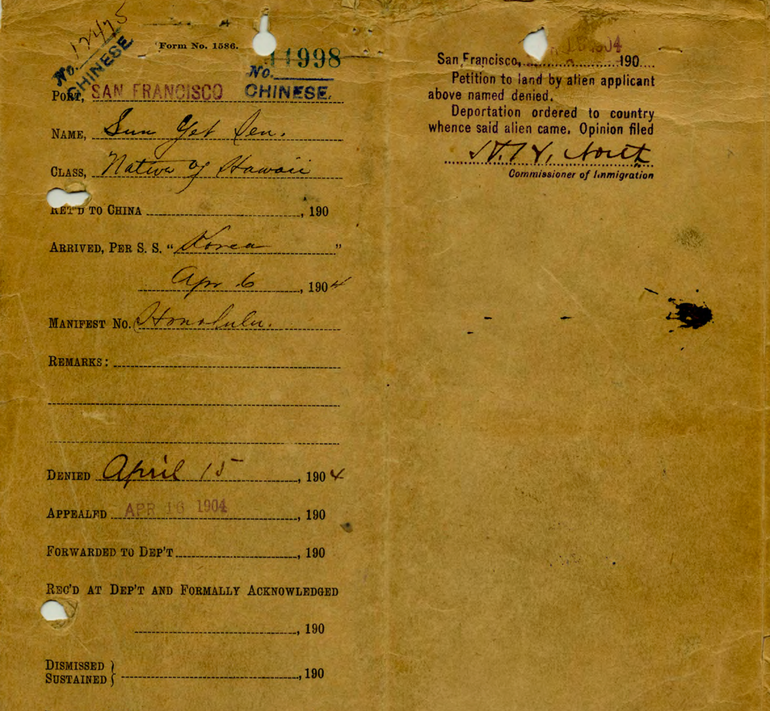 No. 12475
CHINESE
Form No. 1586.
11998
No.
CHINESE
PORT, SAN FRANCISCO
NAME, Sun Yet Sen.
CLASS, Native of Hawaii
RET'D TO CHINA , 190
ARRIVED, PER S. S. "Korea"
Apr 6, 1904
MANIFEST No. Honolulu.
REMARKS:
DENIED April 15, 1904
APPEALED APR 16 1904, 190
FORWARDED TO DEP'T , 190
REC'D AT DEP'T AND FORMALLY ACKNOWLEDGED
, 190
DISMISSED
SUSTAINED } , 190
San Francisco, 1904 190
Petition to land by alien applicant
above named denied.
Deportation ordered to country
whence said alien came. Opinion filed
H. H. North
Commissioner of Immigration